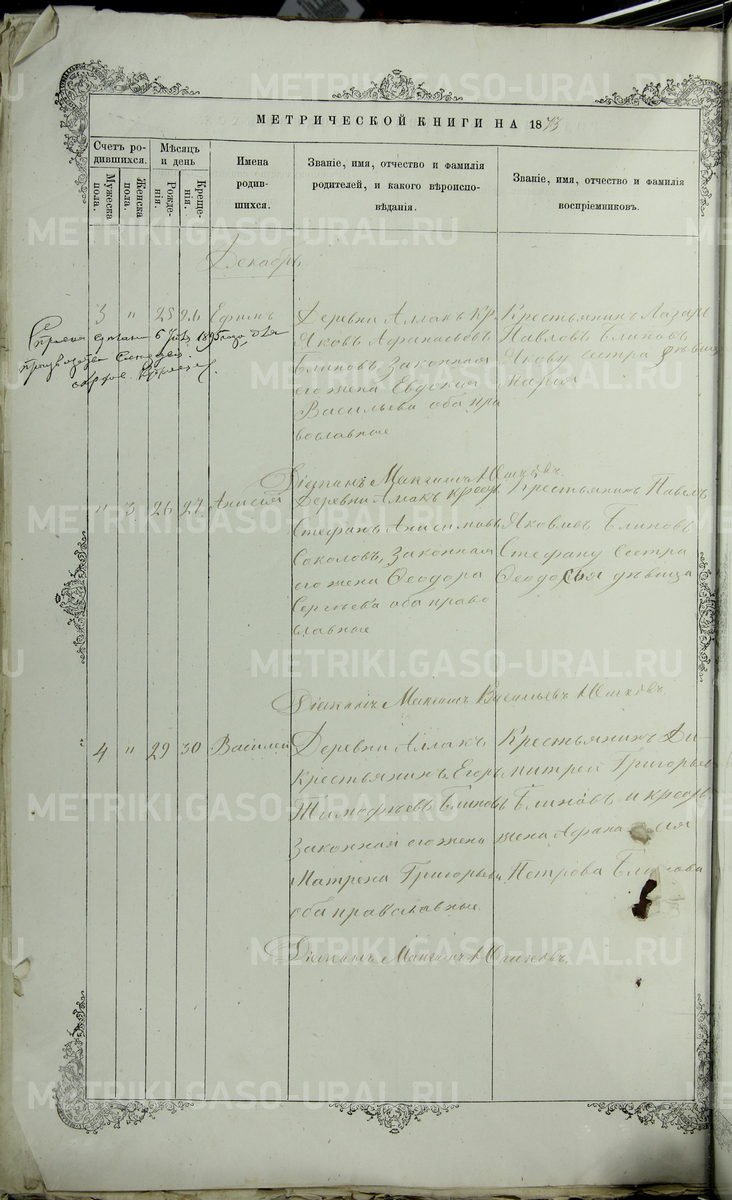 МЕТРИЧЕСКОЙ КНИГИ НА 1873
Счетъ ро-
дившихся.
Мужеска
пола.
Женска
пола.
Мѣсяцъ
и день
Рожде-
нія.
Креще-
нія.
Имена
родив-
шихся.
Званіе, имя, отчество и фамилія
родителей, и какого вѣроиспо-
вѣданія.
Званіе, имя, отчество и фамилія
воспріемниковъ.
Декабрь
3 " 25 26 Ефимъ
Деревни Аллакъ Кр.
Яковъ Афанасьевъ
Блиновъ, законная
его жена Евдокия
Васильева оба пра
вославные
Крестьянинъ Лазарь
Павловъ Блиновъ
Якову сестра дѣвица
Мария
6 1895 года, для
Диаконъ Максимъ Юшковъ
" 3 26 27 Анисія
Деревни Алакъ крест
Стефанъ Анисимовъ
Соколовъ, законная
его жена Феодора
Сергѣева оба право
славные
Крестьянинъ Павелъ
Яковлевъ Блиновъ
Стефану сестра
Феодосья дѣвица
Диаконъ Максимъ Васильевъ Юшковъ
4 " 29 30 Василей
Деревни Аллакъ
Крестьянинъ Егоръ
Тимофѣевъ Блиновъ
законная его жена
Матрена Григорьева
оба православные
Крестьянинъ Ди
митрей Григорьев
Блиновъ и крест
жена Афанасия
Петрова Блинова
Диаконъ Максимъ Юшковъ
METRIKI.GASO-URAL.RU
METRIKI.GASO-URAL.RU
METRIKI.GASO-URAL.RU
METRIKI.GASO-URAL.RU
METRIKI.GASO-URAL.RU
METRIKI.GASO-URAL.RU
METRIKI.GASO-URAL.RU
METRIKI.GASO-URAL.RU